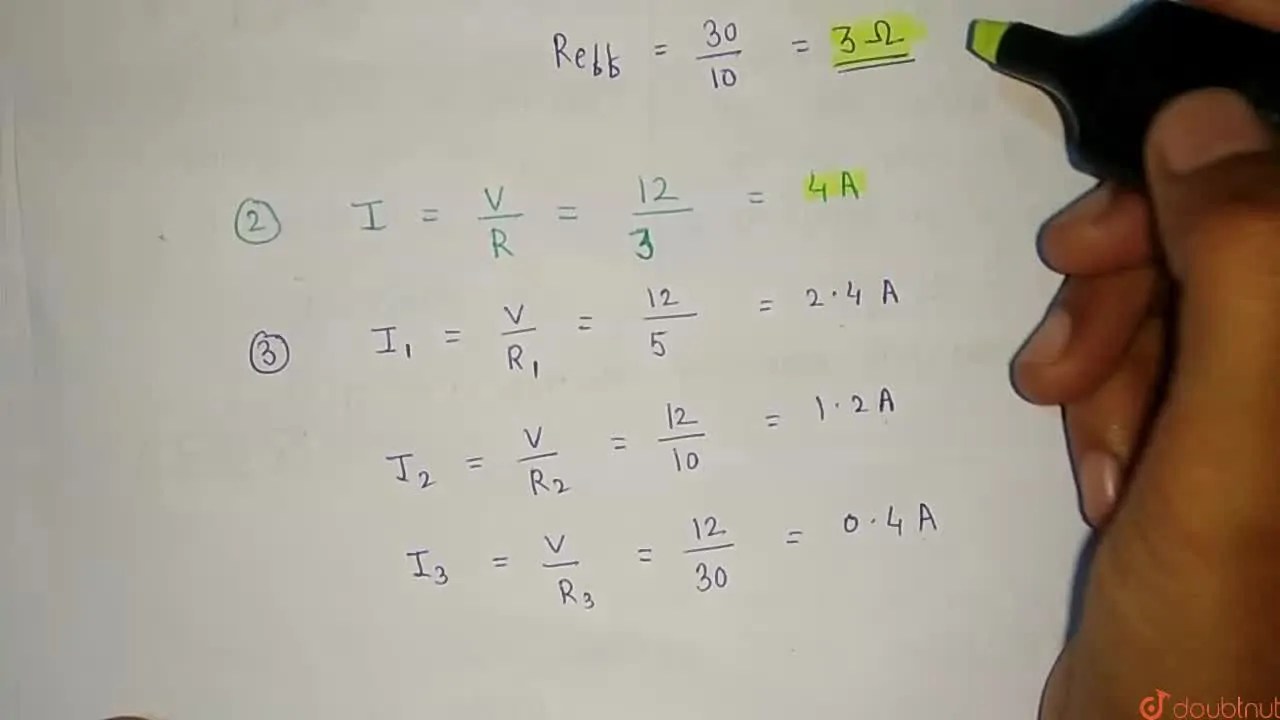 Reff = 30/10 = 3 Ω
② I = V/R = 12/3 = 4 A
③ I₁ = V/R₁ = 12/5 = 2.4 A
I₂ = V/R₂ = 12/10 = 1.2 A
I₃ = V/R₃ = 12/30 = 0.4 A
doubtnut